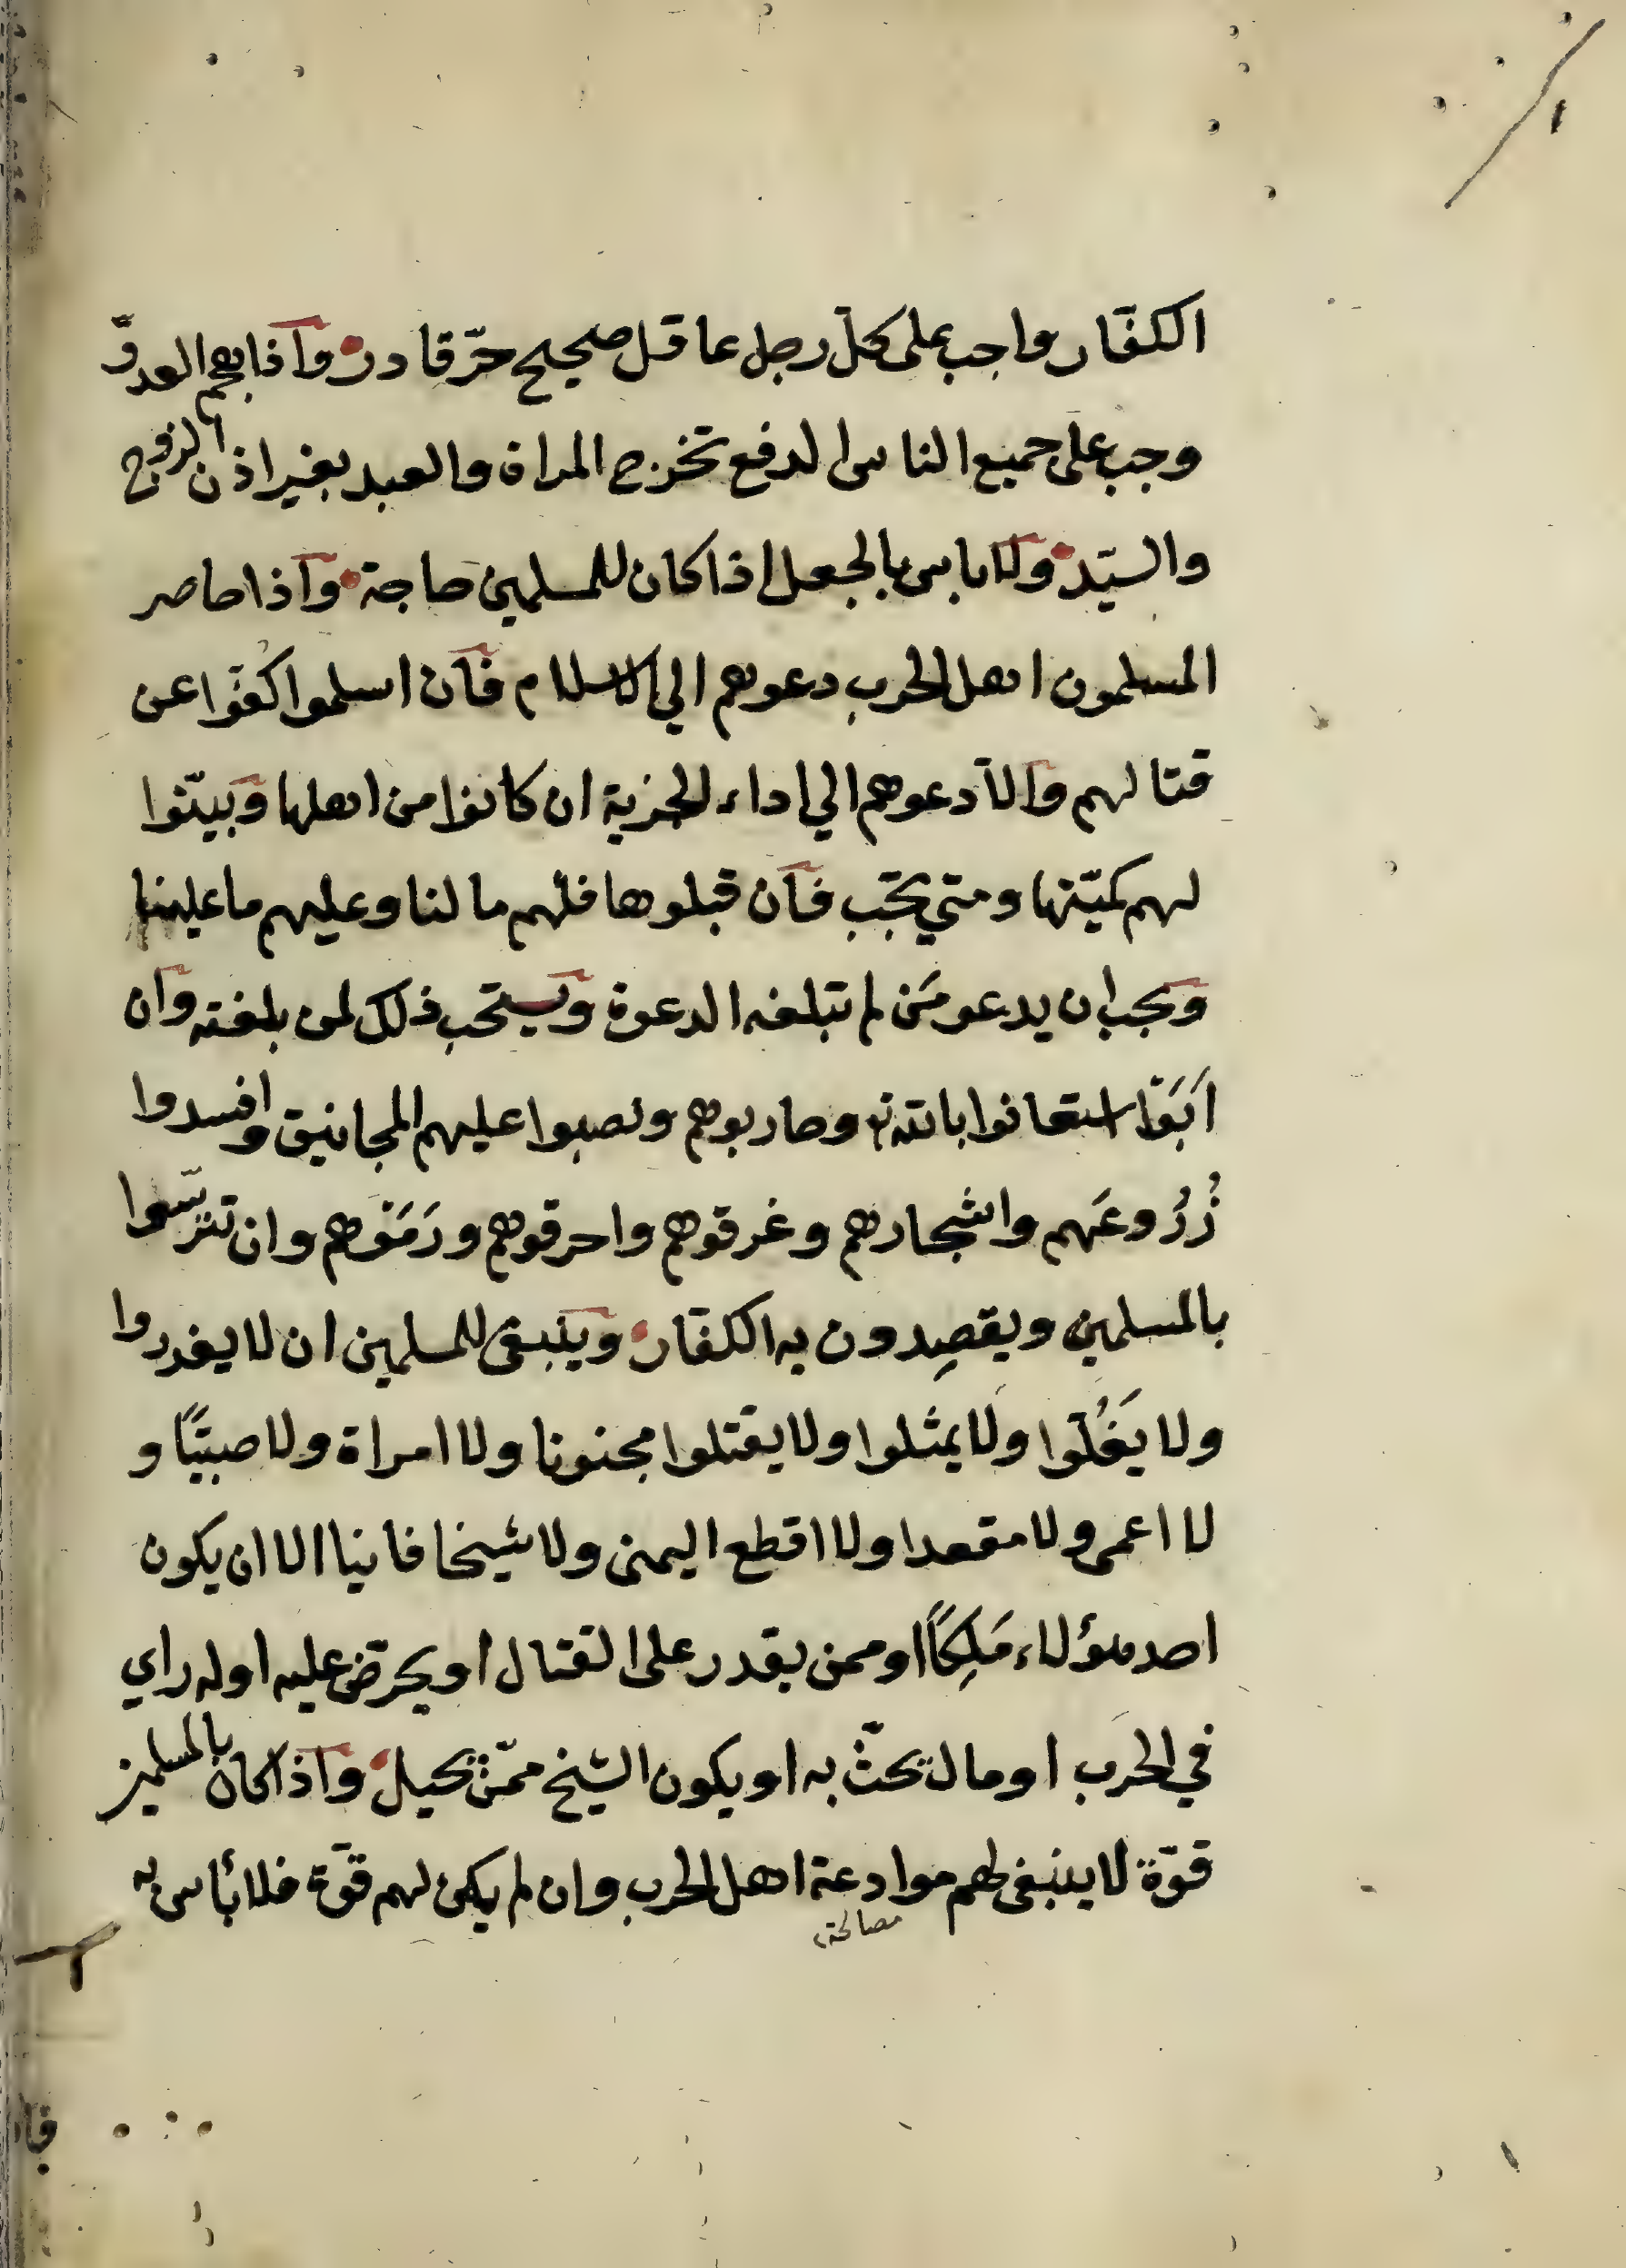 ١
الكفّار واجب على كلّ رجل عاقل صحيح حرّ قادر واذا هجم العدوّ
وجب على جميع الناس الدفع تخرج المراة والعبد بغير اذن الزوج
والسيّد ولا باس بالجعل اذا كان للمسلمين حاجة واذا حاصر
المسلمون اهل الحرب دعوهم الي الاسلام فان اسلموا كفّوا عن
قتالهم والّا دعوهم الي اداء الجزية ان كانوا من اهلها وبيّنوا
لهم كميّتها ومتي تجب فان قبلوها فلهم ما لنا وعليهم ما علينا
ويجب ان يدعو مَن لم تبلغه الدعوة ويستحب ذلك لمن بلغته وان
اَبَوْا استعانوا بالله تع وحاربوهم ونصبوا عليهم المجانيق وافسدوا
زُرُوعَهم واشجارهم وغرقوهم واحرقوهم ورَمَوْهم وان تترّسوا
بالمسلمين ويقصِدون به الكفّار وينبغى للمسلمين ان لا يغدروا
ولا يَغُلّوا ولا يمثلوا ولا يقتلوا مجنونا ولا امراة ولا صبيًّا و
لا اعمى ولا مقعدا ولا اقطع اليمنى ولا شيخا فانيا الا ان يكون
احد هؤلاء مَلِكًا او ممن يقدر على القتال او يحرّض عليه او له راي
في الحرب او مال يحثّ به او يكون الشيخ ممّن يحيل واذا كان بالمسلمين
قوّة لا ينبغى لهم موادعة اهل الحرب وان لم يكن لهم قوّة فلا بأس به
مصالحة